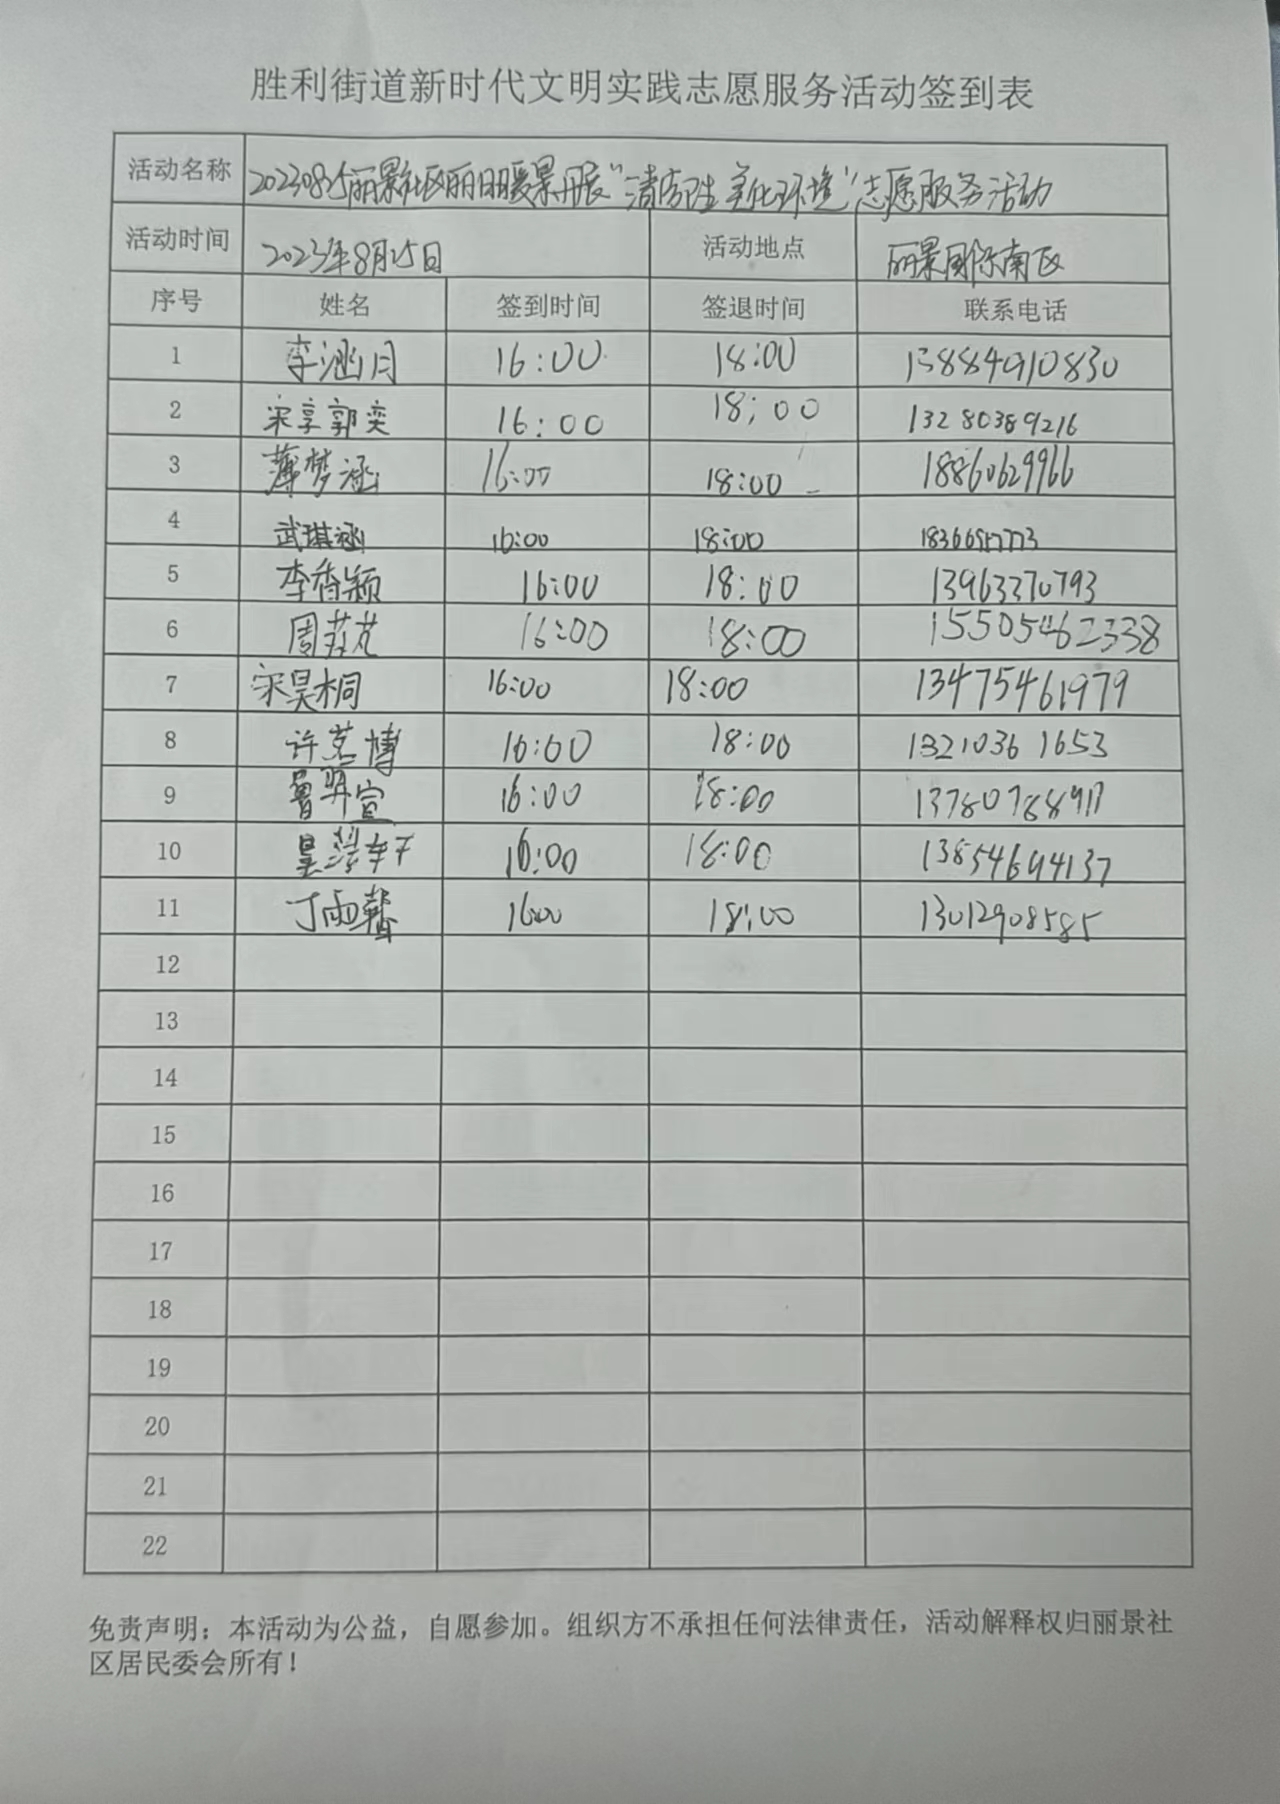 胜利街道新时代文明实践志愿服务活动签到表
活动名称 20230825丽景社区丽日暖景开展“清洁卫生 美化环境”志愿服务活动
活动时间 2023年8月25日 活动地点 丽景国际南区
序号 姓名 签到时间 签退时间 联系电话
1 李涵月 16:00 18:00 13884910830
2 宋享郭奕 16:00 18:00 13280389216
3 薄梦涵 16:00 18:00 18860629966
4 武琪涵 16:00 18:00
5 李香颖 16:00 18:00 13963370793
6 周 16:00 18:00 15505462338
7 宋昊桐 16:00 18:00 13475461979
8 许茗博 16:00 18:00 13210361653
9 曹羿宣 16:00 18:00
10 16:00 18:00 13854694137
11 丁雨馨 16:00 18:00 13012908585
12
13
14
15
16
17
18
19
20
21
22
免责声明：本活动为公益，自愿参加。组织方不承担任何法律责任，活动解释权归丽景社
区居民委会所有！